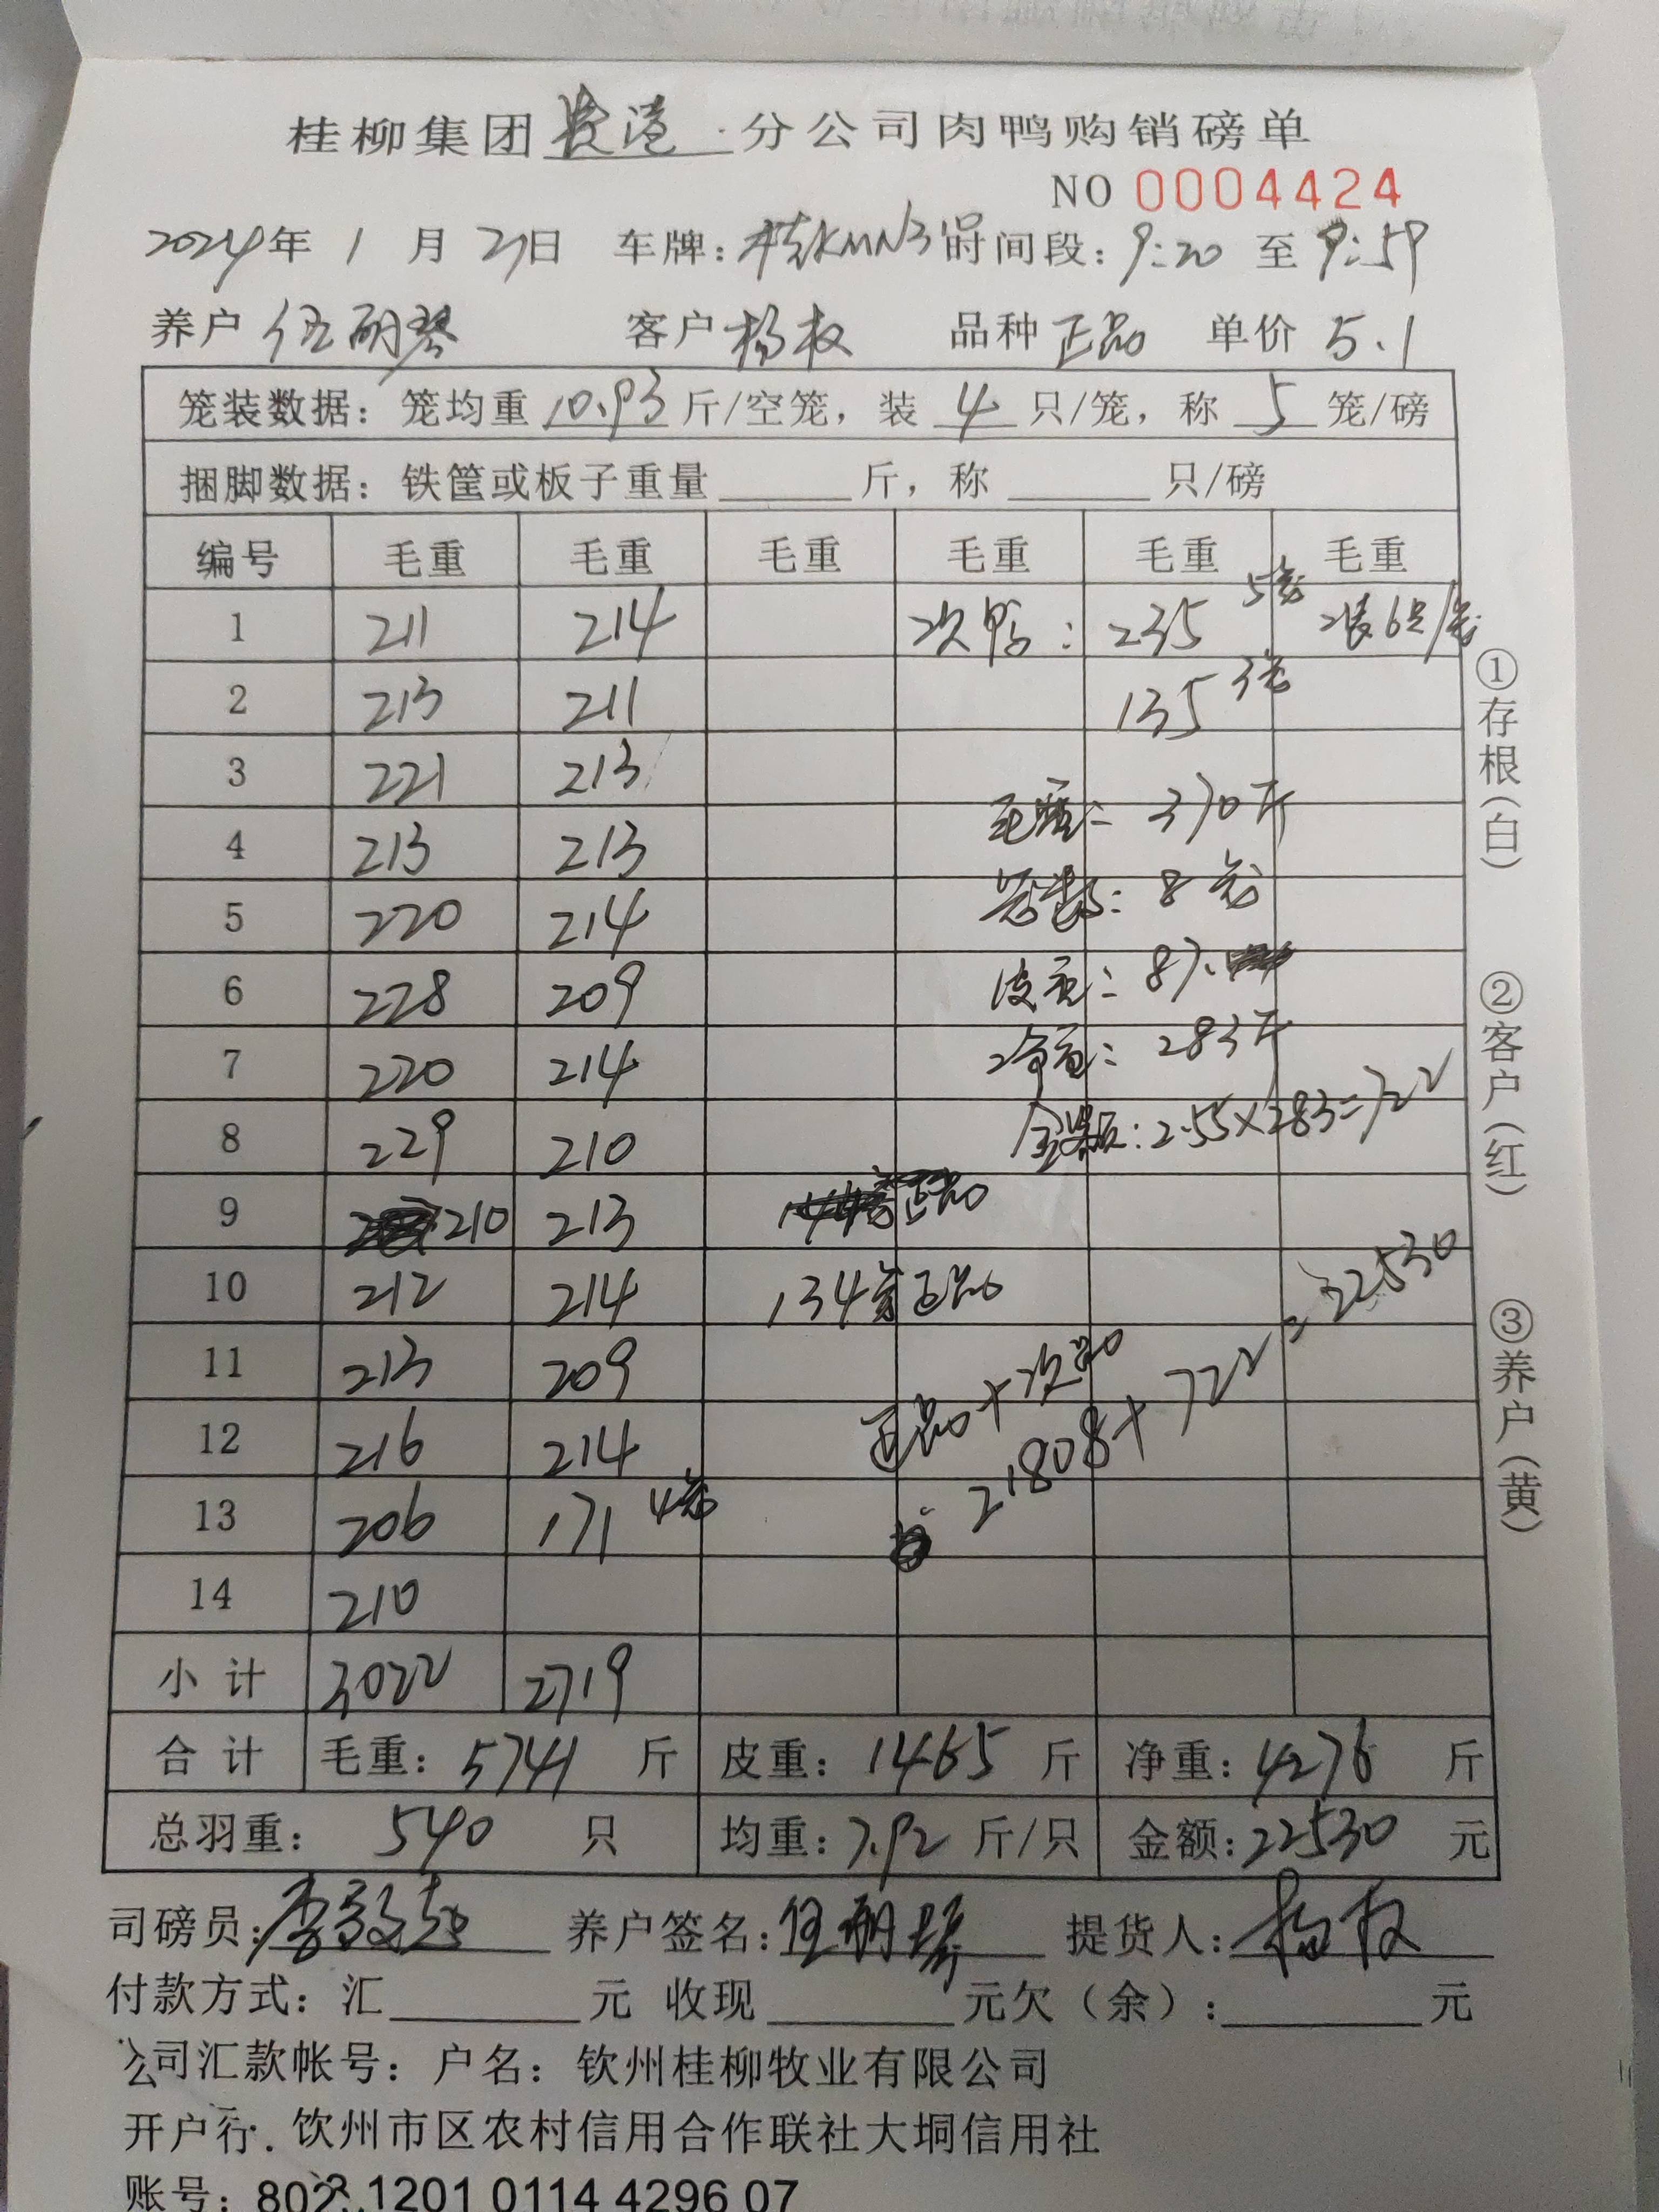 桂柳集团 贵港 分公司肉鸭购销磅单
NO 0004424
2024年 1 月 21日 车牌: 时间段: 9:20 至 9:59
养户 伍丽琴 客户 杨权 品种 正品 单价 5.1
笼装数据: 笼均重 10.93 斤/空笼, 装 4 只/笼, 称 5 笼/磅
捆脚数据: 铁筐或板子重量 斤, 称 只/磅
编号 毛重 毛重 毛重 毛重 毛重 毛重
1 211 214 次鸭: 235 5笼 装6只/笼
2 213 211 135 3笼
3 221 213
4 213 213 毛重: 370斤
5 220 214 笼数: 8笼
6 228 209 皮重: 87.
7 220 214 净重: 283斤
8 229 210 金额: 2.55×283=722
9 210 213 正品
10 212 214 134笼正品
11 213 209 正品+次品
12 216 214 21808+722=22530
13 206 171 4笼
14 210
小计 3022 2719
合计 毛重: 5741 斤 皮重: 1465 斤 净重: 4276 斤
总羽重: 540 只 均重: 7.92 斤/只 金额: 22530 元
①存根(白)
②客户(红)
③养户(黄)
司磅员: 养户签名: 伍丽琴 提货人: 杨权
付款方式: 汇 元 收现 元欠(余): 元
公司汇款帐号: 户名: 钦州桂柳牧业有限公司
开户行. 钦州市区农村信用合作联社大垌信用社
账号: 802 1201 0114 4296 07